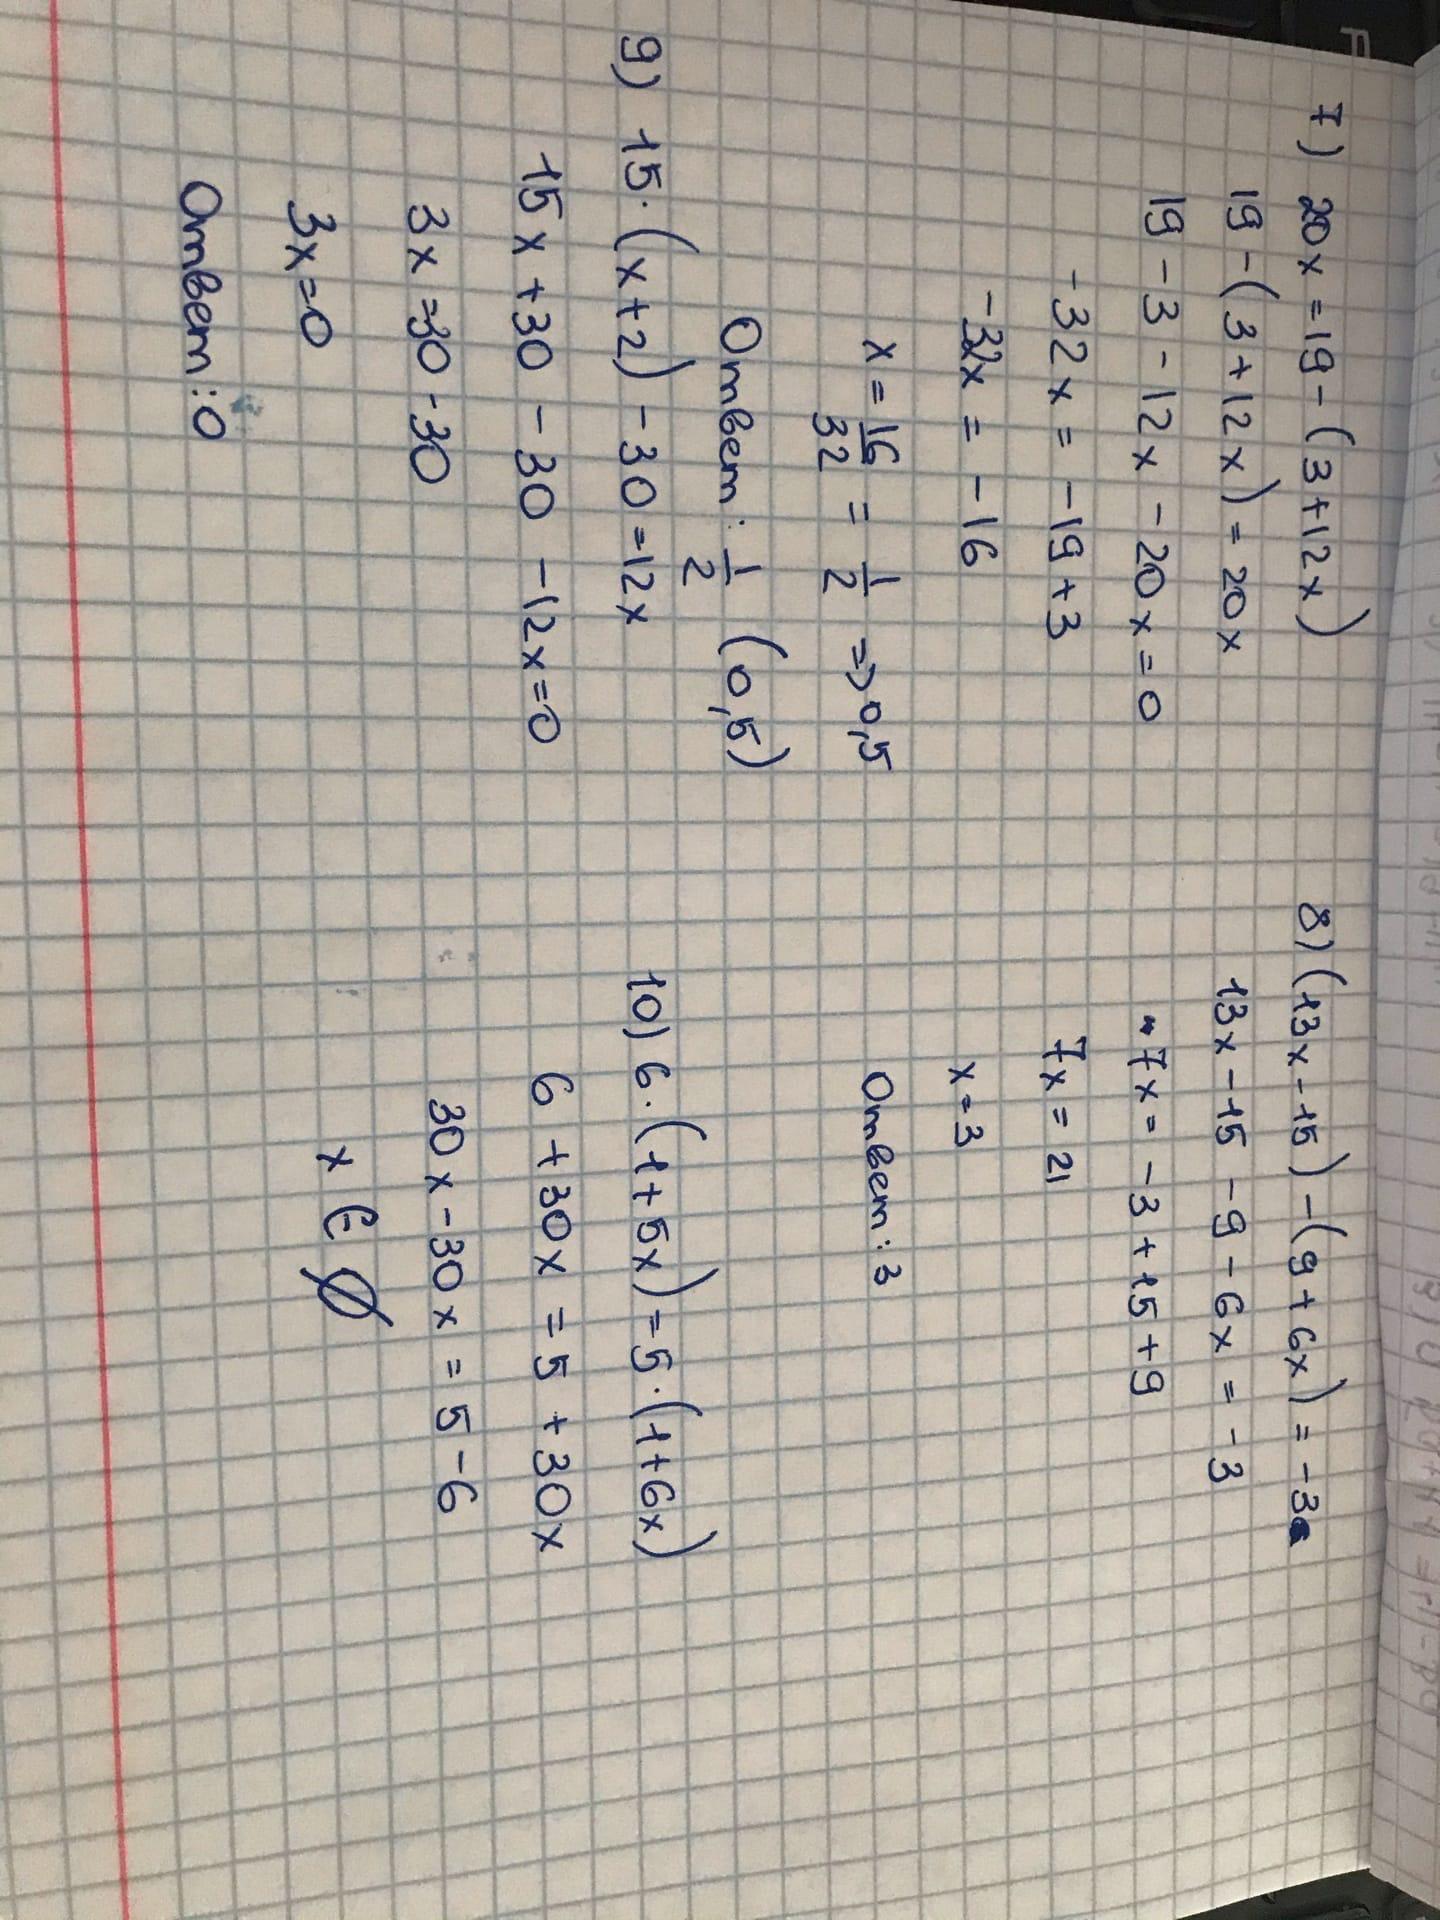 7) 20x = 19 - (3 + 12x)
19 - (3 + 12x) = 20x
19 - 3 - 12x - 20x = 0
-32x = -19 + 3
-32x = -16
x = 16/32 = 1/2 => 0,5
Ответ: 1/2 (0,5)
8) (13x - 15) - (9 + 6x) = -3
13x - 15 - 9 - 6x = -3
7x = -3 + 15 + 9
7x = 21
x = 3
Ответ: 3
9) 15 · (x + 2) - 30 = 12x
15x + 30 - 30 - 12x = 0
3x = 30 - 30
3x = 0
Ответ: 0
10) 6 · (1 + 5x) = 5 · (1 + 6x)
6 + 30x = 5 + 30x
30x - 30x = 5 - 6
x ∈ ∅